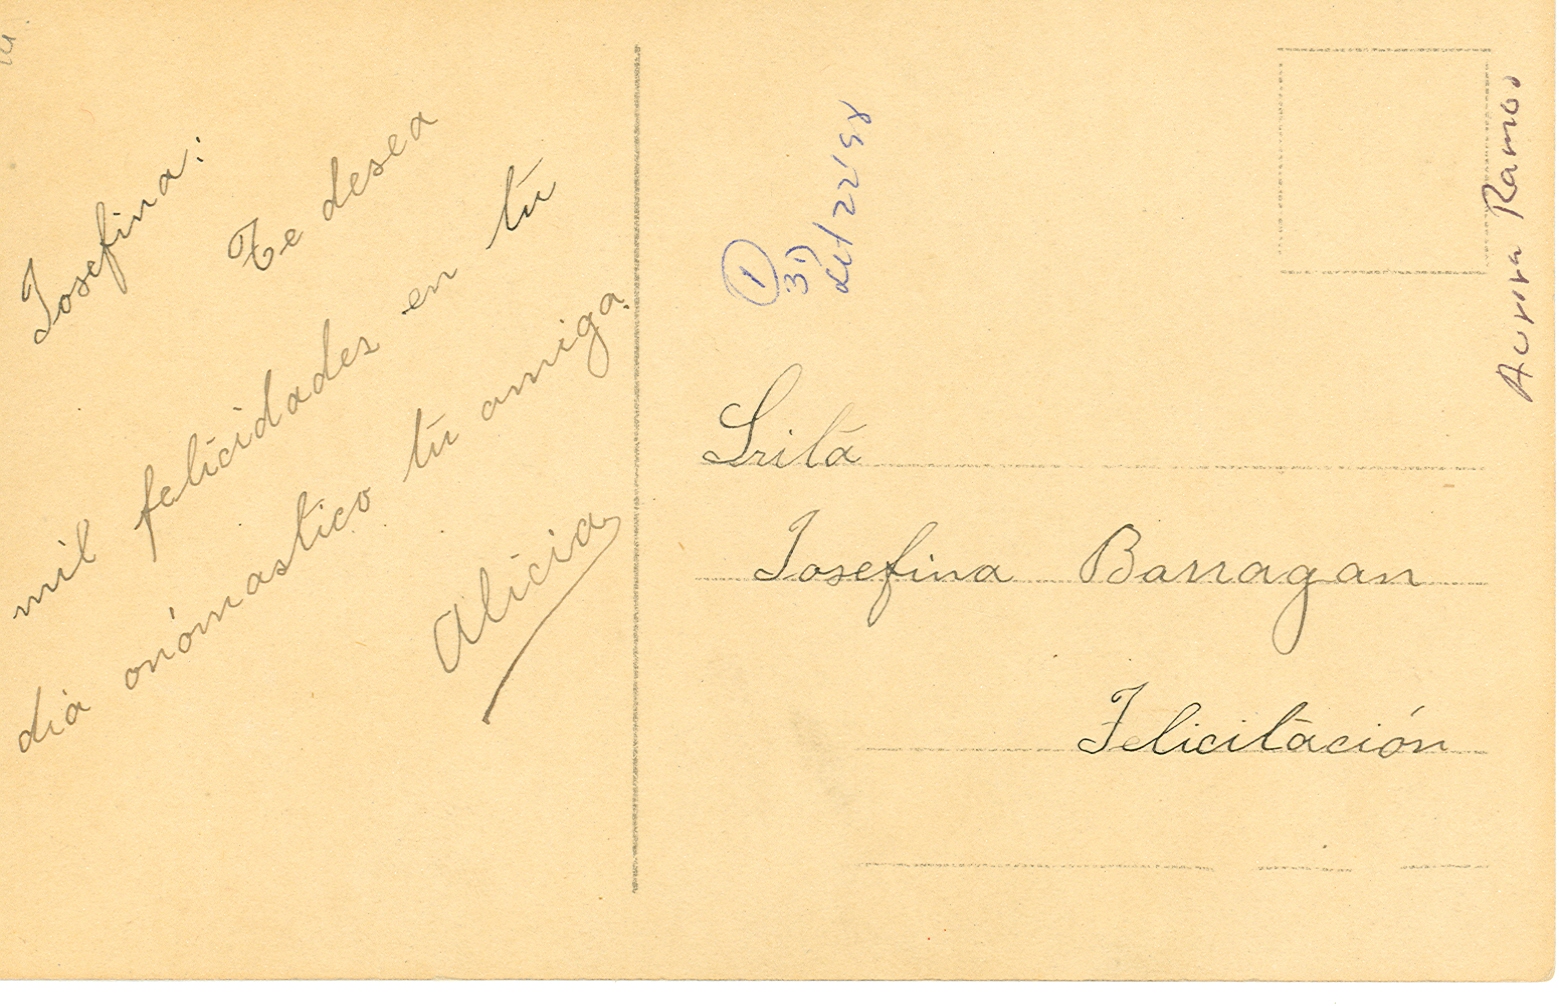 Josefina:
Te desea
mil felicidades en tú
día onómastico tú amiga.
Alicia
1
31
Oct 22'98
Aurora Ramos
Srita
Josefina Barragan
Felicitación